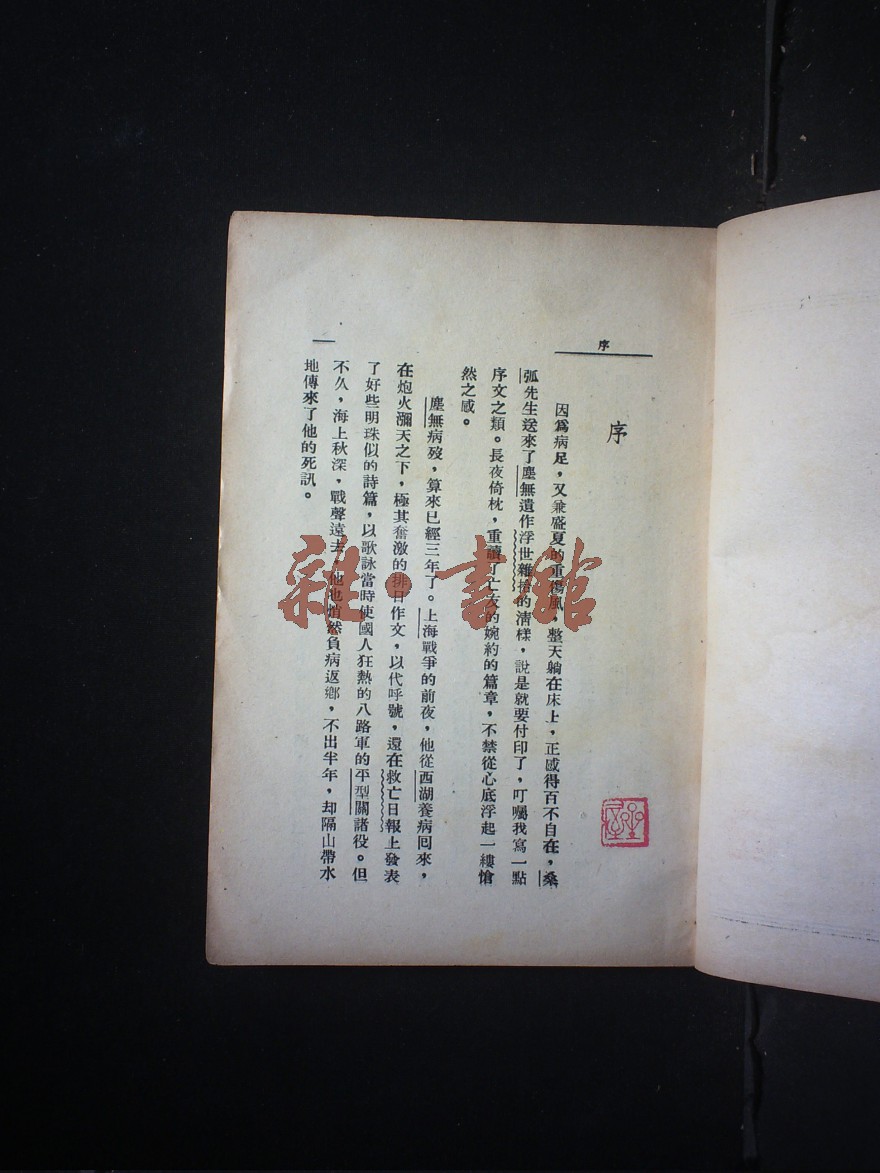 序
序
因爲病足，又兼盛夏的重傷風，整天躺在床上，正感得百不自在，桑
弧先生送來了塵無遺作浮世雜拾的清樣，說是就要付印了，叮囑我寫一點
序文之類。長夜倚枕，重讀了亡友的婉約的篇章，不禁從心底浮起一縷愴
然之感。
塵無病歿，算來已經三年了。上海戰爭的前夜，他從西湖養病回來，
在炮火瀰天之下，極其奮激的排日作文，以代呼號，還在救亡日報上發表
了好些明珠似的詩篇，以歌詠當時使國人狂熱的八路軍的平型關諸役。但
不久，海上秋深，戰聲遠去，他也悄然負病返鄉，不出半年，却隔山帶水
地傳來了他的死訊。
一
雜·書館